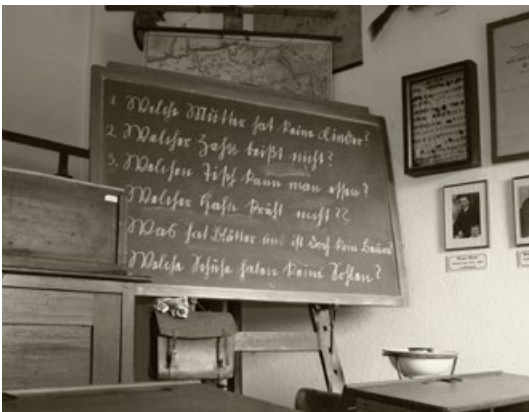 1. Welche Mutter hat keine Kinder?
2. Welcher Zahn beißt nicht?
3. Welchen Tisch kann man essen?
Welcher Hahn kräht nicht??
Was hat Blätter und ist doch kein Baum
Welche Schuhe haben keine Sohlen?